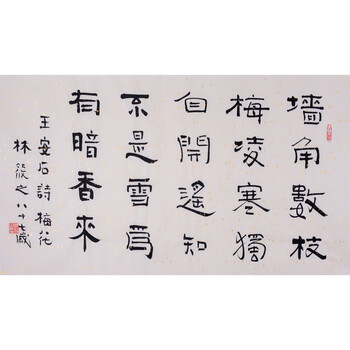 墻角數枝
梅凌寒獨
自開遙知
不是雪爲
有暗香來
王安石詩梅花
林筱之八十七歲